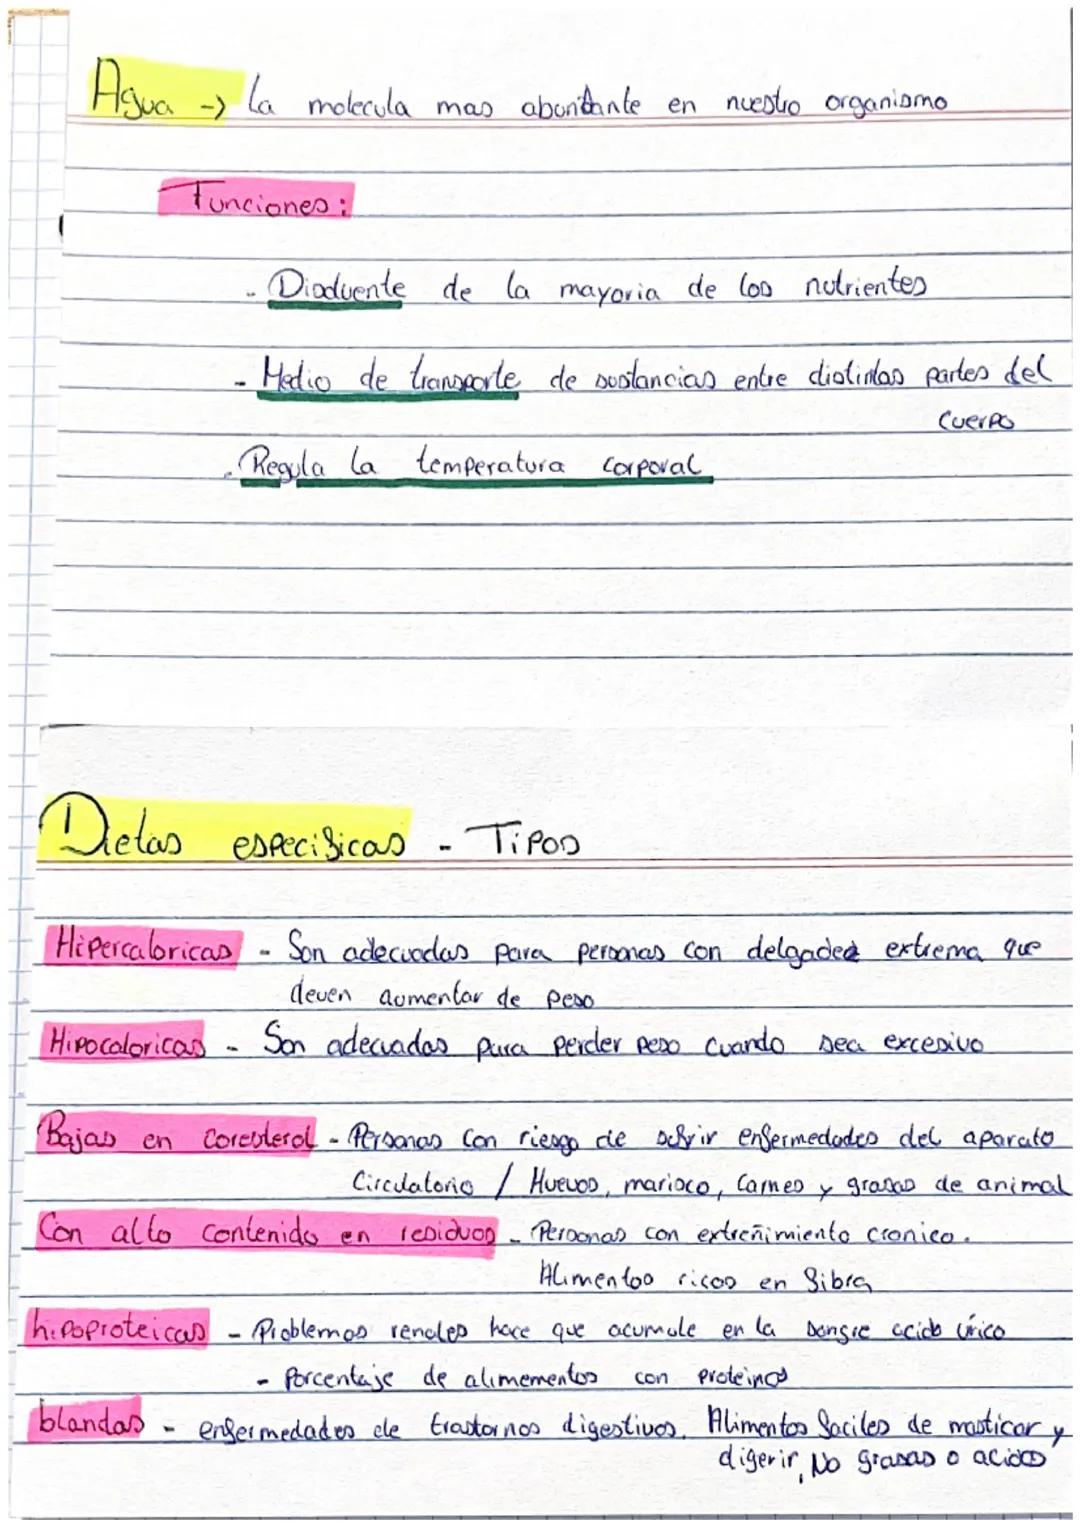 Agua -> La molecula mas abundante en nuestro organismo
Funciones:
- Disolvente de la mayoria de los nutrientes
- Medio de transporte de sustancias entre distintas partes del
cuerpo
- Regula la temperatura corporal
Dietas especificas - Tipos
Hipercaloricas - Son adecuadas para personas con delgadez extrema que
deven aumentar de peso
Hipocaloricas - Son adecuadas para perder peso cuando sea excesivo
Bajas en coresterol - Personas con riesgo de sufrir enfermedades del aparato
Circulatorio / Huevos, marisco, Carnes y grasas de animal
Con alto contenido en residuos - Personas con extreñimiento cronico.
Alimentos ricos en fibra
hipoproteicas - Problemas renales hace que acumule en la sangre acido úrico
- Porcentaje de alimementos con proteinas
blandas - enfermedades de trastornos digestivos. Alimentos faciles de masticar y
digerir, No grasas o acidos